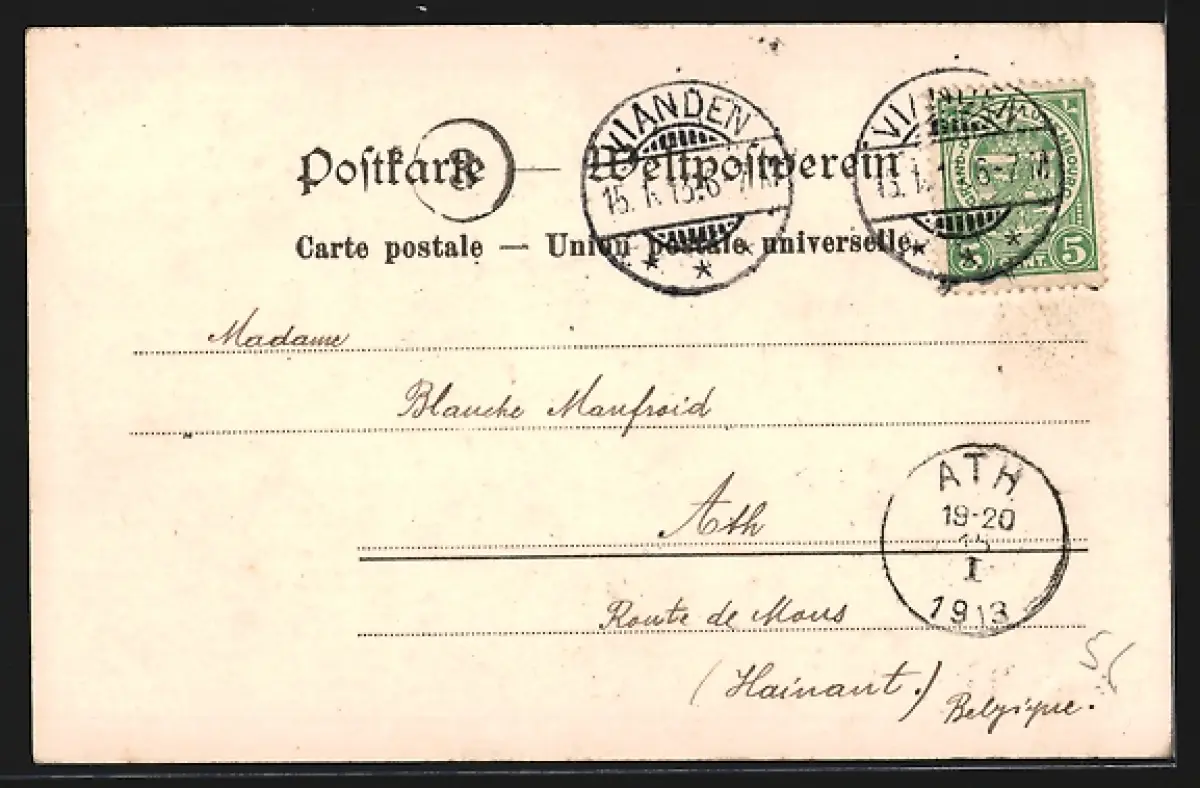 Postkarte — Weltpostverein
Carte postale — Union postale universelle.
VIANDEN
15.1.13.6-7M
6-7M
GRAND-D
LUXEMBOURG
5 CENT. 5
Madame
Blanche Manfroid
Ath
ATH
19-20
15
I
1913
Route de Mons
(Hainaut.)
Belgique.